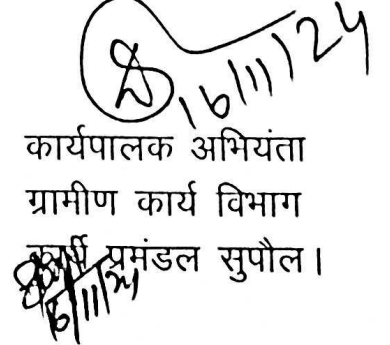 16/11/24
कार्यपालक अभियंता
ग्रामीण कार्य विभाग
कार्य प्रमंडल सुपौल।
16/11/24